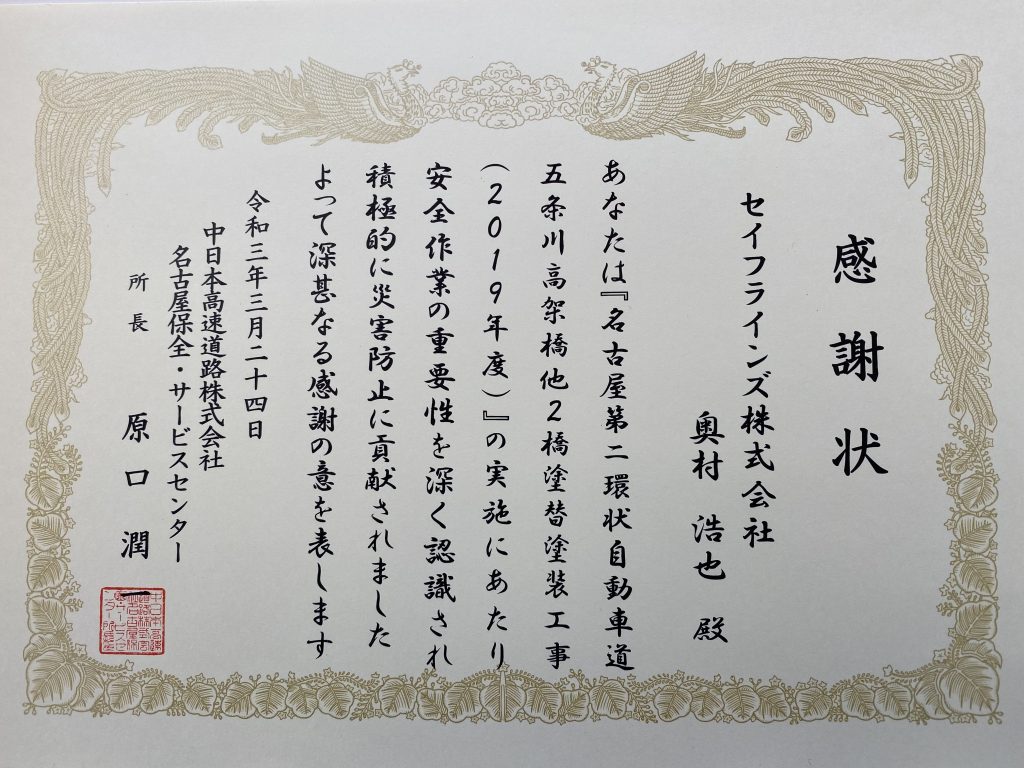 感謝状
セイフラインズ株式会社
奥村 浩也 殿
あなたは『名古屋第二環状自動車道
五条川高架橋他2橋塗替塗装工事
(2019年度)』の実施にあたり
安全作業の重要性を深く認識され
積極的に災害防止に貢献されました
よって深甚なる感謝の意を表します
令和三年三月二十四日
中日本高速道路株式会社
名古屋保全・サービスセンター
所長 原口 潤一